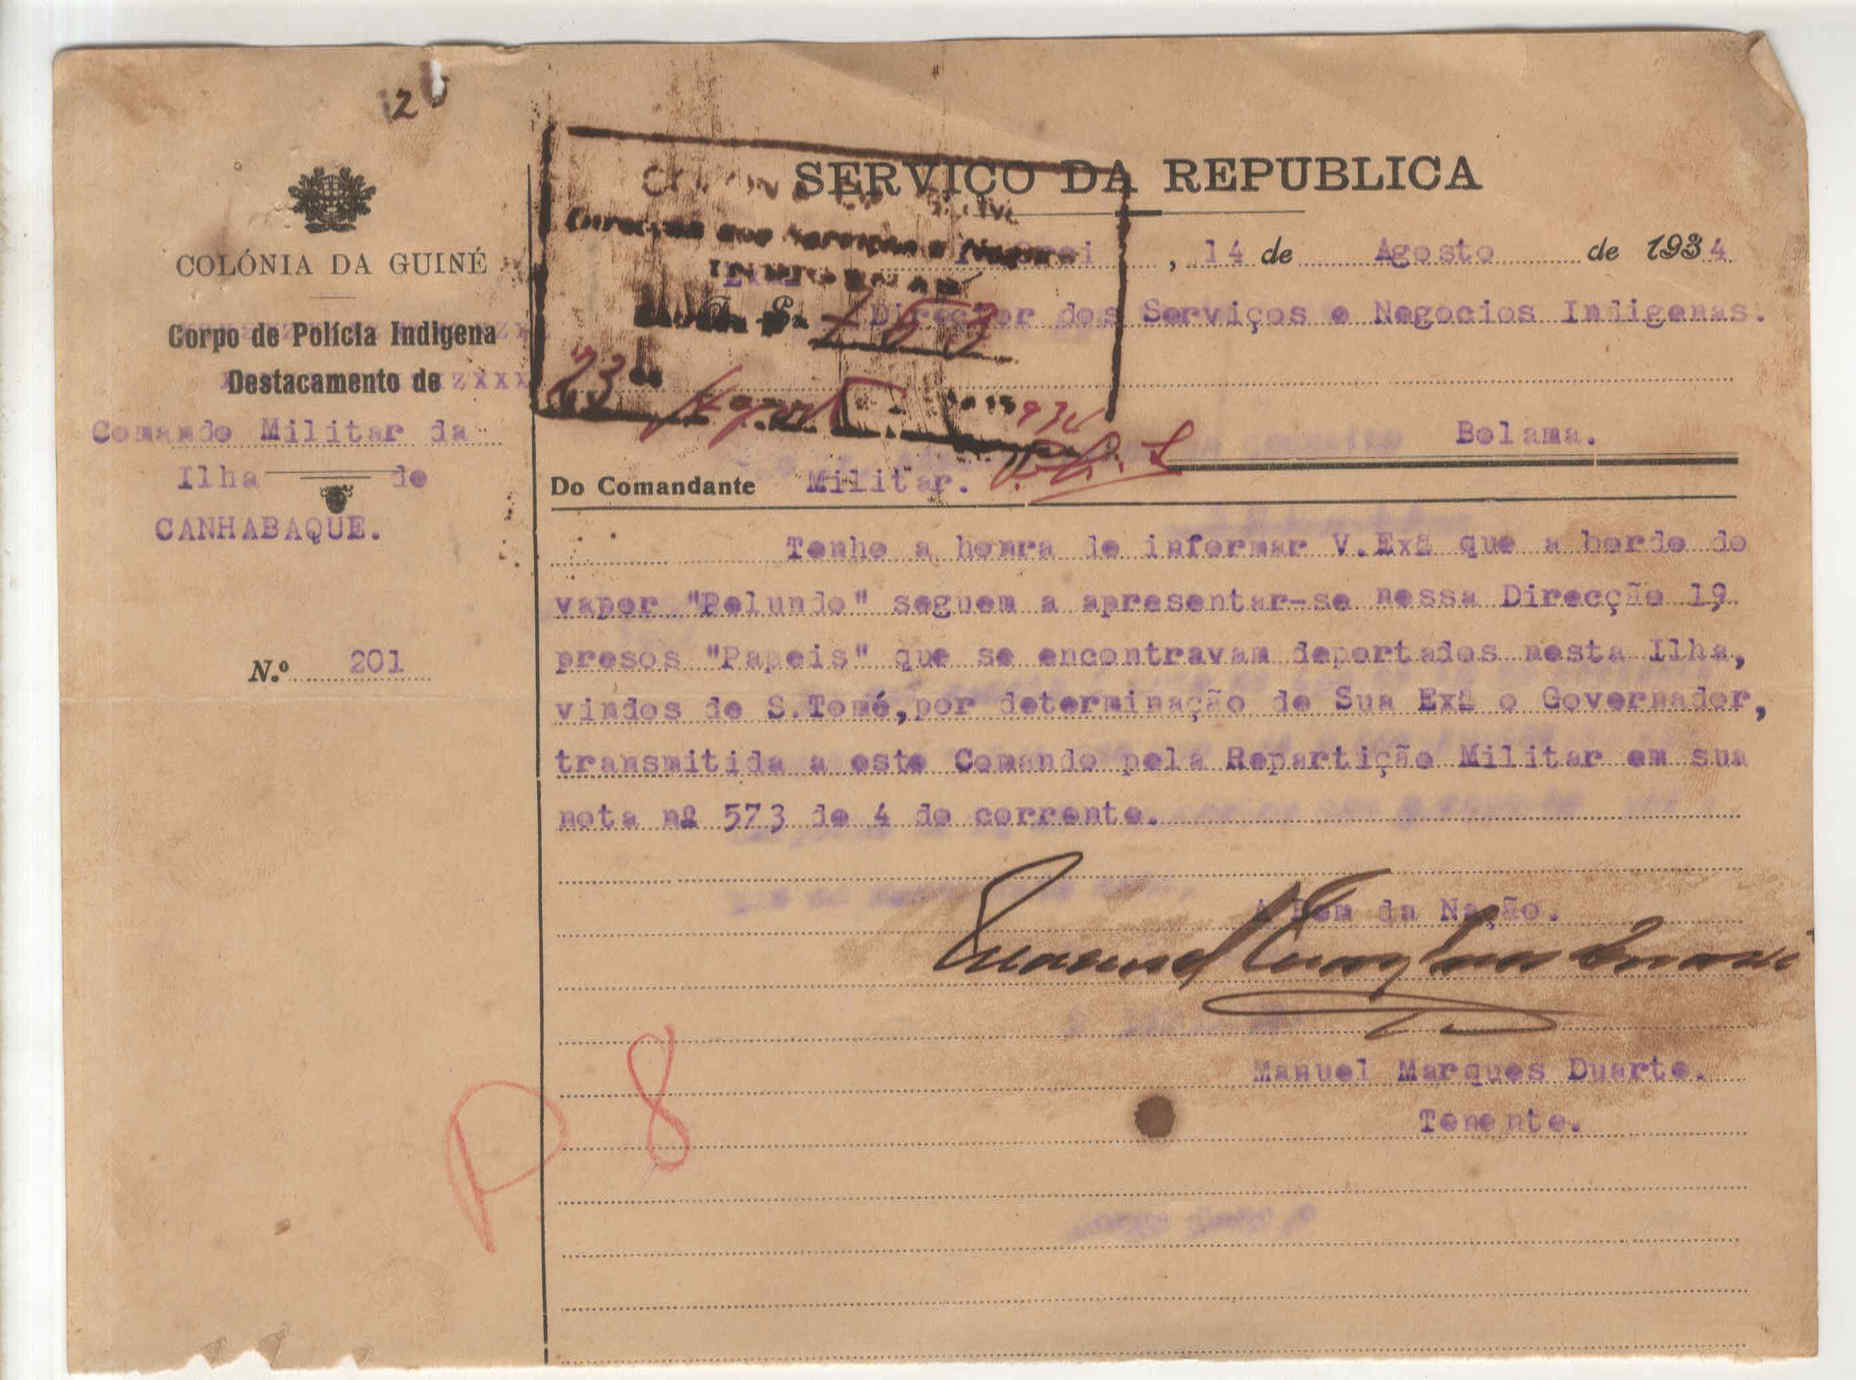 12
SERVIÇO DA REPUBLICA
COLÓNIA DA GUINÉ
Corpo de Polícia Indigena
Destacamento de zxxx
Comando Militar da
Ilha de
CANHABAQUE.
N.º 201
, 14 de Agosto de 1934
Director dos Serviços e Negocios Indigenas.
23 de Agosto de 1934
Bolama.
Do Comandante Militar.
Tenho a honra de informar V.Exª que a bordo do
vapor "Pelundo" seguem a apresentar-se nessa Direcção 19
presos "Papeis" que se encontravam deportados nesta Ilha,
vindos de S.Tomé,por determinação de Sua Exª o Governador,
transmitida a este Comando pela Repartição Militar em sua
nota nº 573 de 4 do corrente.
A Bem da Nação.
Manuel Marques Duarte.
Tenente.
P 8